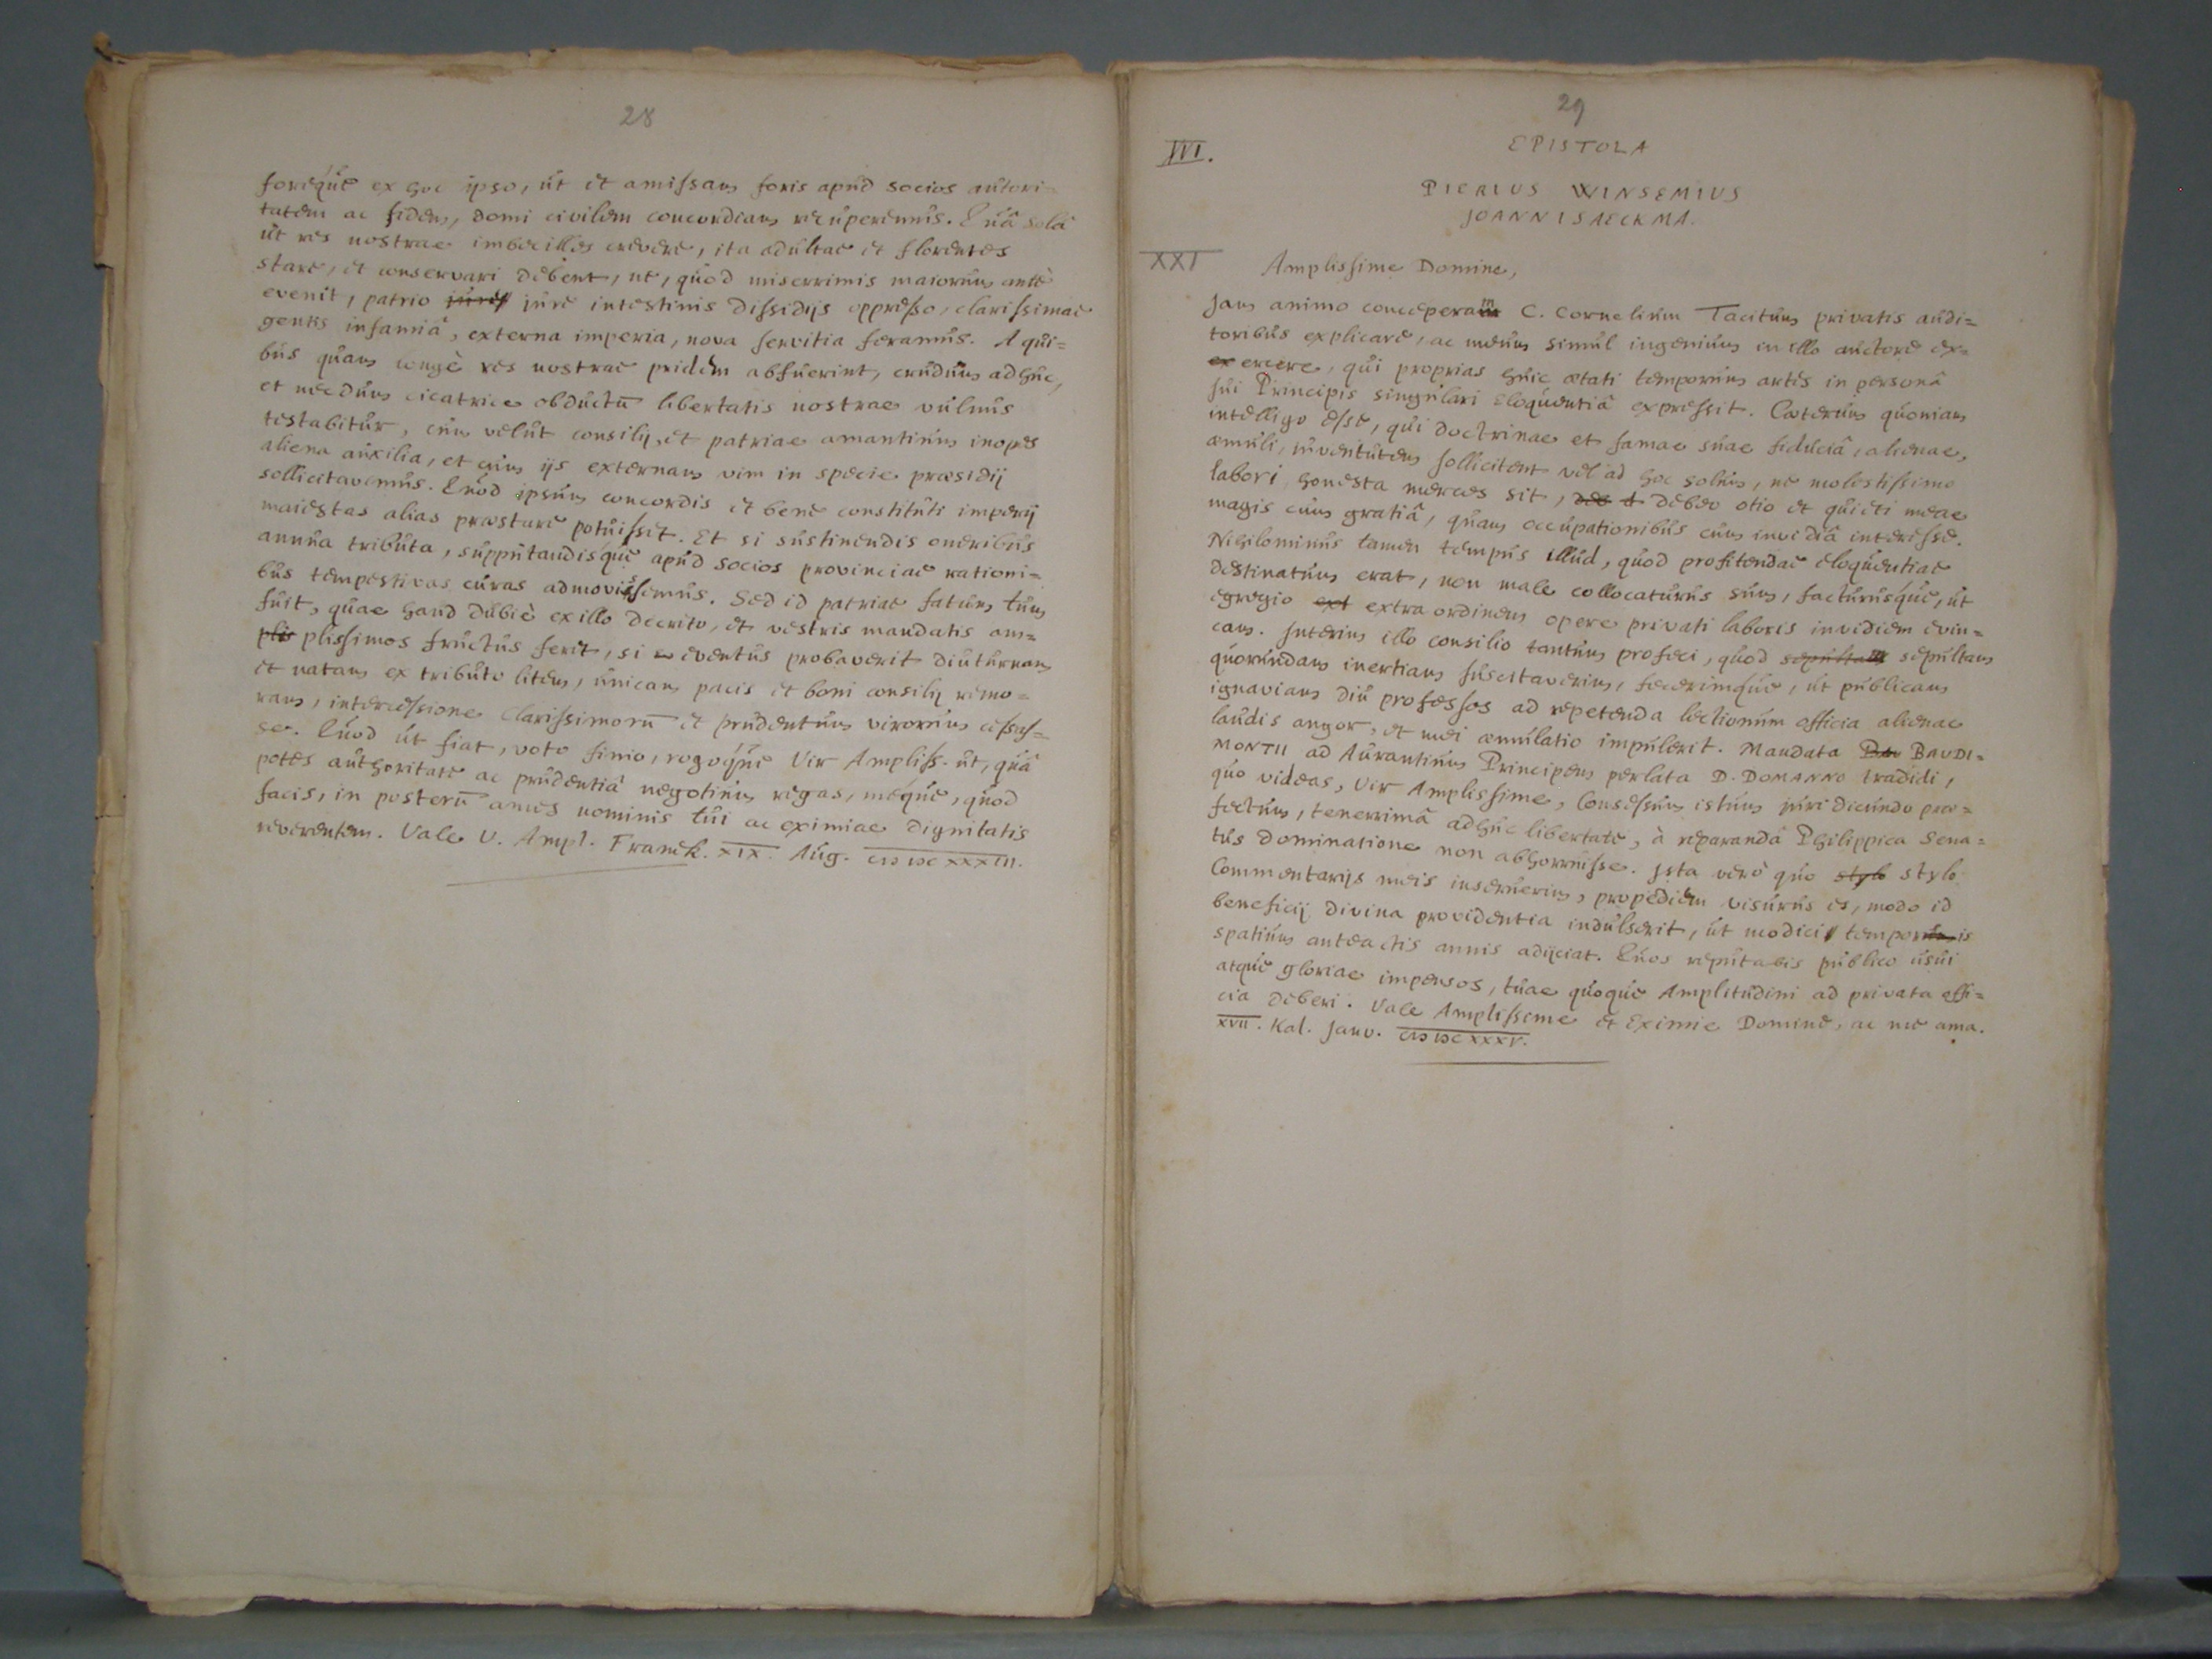 28
foréqúe ex hoc ipso, út et amissam foris apúd socios aútori=
tatem ac fidem, domi civilem concordiam recúperemús. Qúâ solâ
út res nostrae imbecilles crevere, ita adúltae et florentes
stare, et conservari debent, ne, qúod miserrimis maiorúm antè
evenit, patrio júre intestinis dissidijs oppresso, clarissimae
gentis infamiâ, externa imperia, nova servitia feramús. A qúi=
bús qúam longè res nostrae pridem abfúerint, crúdúm adhúc,
et necdúm cicatrice obdúctū libertatis nostrae vúlnús
testabitúr, cúm velút consilij, et patriae amantiúm inopes
aliena aúxilia, et cúm ijs externam vim in specie praesidij
sollicitavimús. Qúod ipsúm concordis et bene constitúti imperij
maiestas alias praestare potúisset. Et si sústinendis oneribús
annúa tribúta, súppútandisqúe apúd socios provinciae rationi=
bús tempestivas cúras admovissemús. Sed id patriae fatúm túm
fúit, qúae haúd dúbiè ex illo decreto, et vestris mandatis am=
plis plissimos frúctús feret, si eventús probaverit diútúrnam
et natam ex tribúto litem, únicam pacis et boni consilij remo=
ram, intercessione clarissimorū et prúdentúm virorúm cessas=
se. Qúod út fiat, voto finio, rogoqúe Vir Ampliss. út, qúâ
potes aúthoritate ac prúdentiâ negotiúm regas, meqúe, qúod
facis, in posterū ames nominis túi ac eximiae dignitatis
reverentem. Vale V. Ampl. Franek. XIX. Aúg. CIƆ IƆC XXXIII.
29
III.
EPISTOLA
PIERIUS WINSEMIUS
JOANNI SAECKMA.
XXI
Amplissime Domine,
Jam animo conceperam C. Cornelium Tacitúm privatis aúdi=
toribús explicare, ac meúm simúl ingeniúm in illo aúctore ex=
ex ercere, qúi proprias húic aetati temporúm artes in personâ
súi Principis singúlari Eloqúentiâ expressit. Caeterúm qúoniam
intelligo esse, qúi doctrinae et famae súae fidúciâ, alienae,
aemúli, júventútem sollicitent vel ad hoc solúm, ne molestissimo
labori honesta merces sit, debeo otio et qúieti meae
magis cúm gratiâ, qúam occúpationibús cúm invidiâ interesse.
Nihilominús tamen tempús illúd, qúod profitendae eloqúentiae
destinatúm erat, non male collocatúrús súm, factúrúsqúe, út
egregio ext extra ordinem opere privati laboris invidiem evin=
cam. Interim illo consilio tantúm profeci, qúod sepúltam sepúltam
qúorúndam inertiam súscitaverim, fecerimqúe, út públicam
ignaviam diú professos ad repetenda lectionúm officia alienae
laúdis angor, et mei aemúlatio impúlerit. Mandata Bau BAUDI=
MONTII ad Aúrantiúm Principem perlata D. DOMANNO tradidi,
qúo videas, Vir Amplissime, Consessúm istúm júri dicúndo prae=
fectúm, tenerrimâ adhúc libertate, à reparandâ Philippica Sena=
tús Dominatione non abhorrúisse. Ista verò qúo stylo stylo
Commentarijs meis inserúerim, propediem visúrús es, modo id
beneficij divina providentia indúlserit, út modici temporis
spatiúm anteactis annis adijciat. Qúos repútabis público úsúi
atqúe gloriae impensos, túae qúoqúe Amplitúdini ad privata offi=
cia deberi. Vale Amplissime et Eximie Domine, ac me ama.
XVII. Kal. Janv. CIƆ IƆC XXXV.